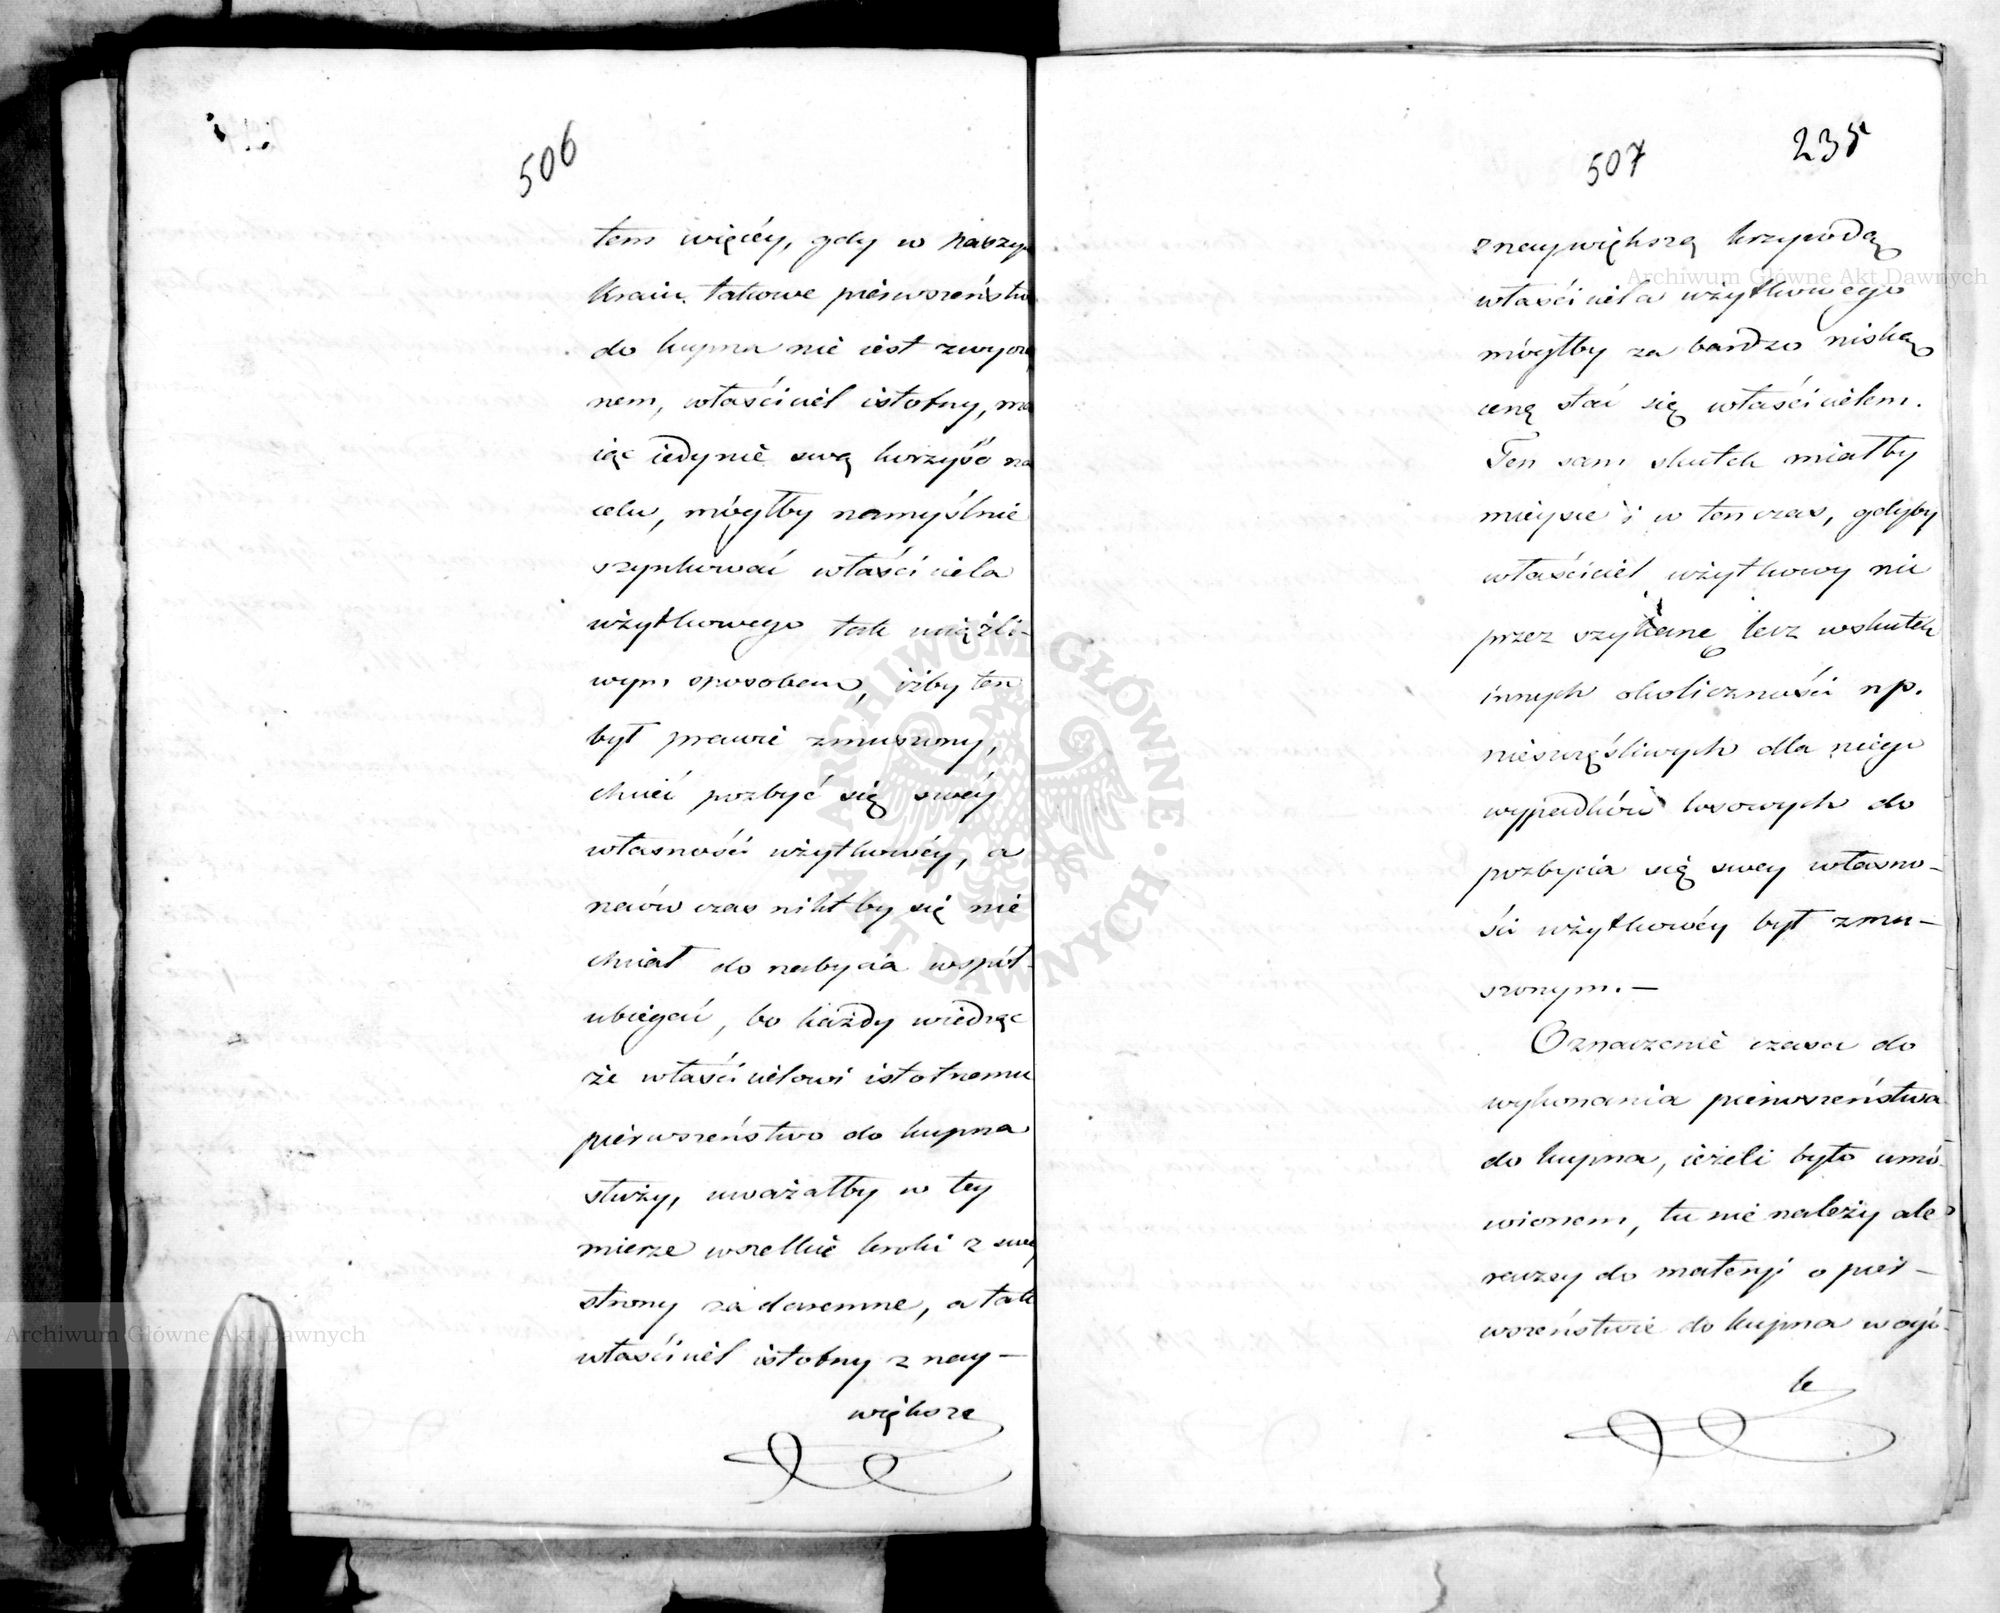 506
tem więcéy, gdy w naszy
Kraiu takowe pierwszeństw
do kupna nie iest zwycza
nem, właściciel istotny, ma
iąc iedynie swą korzyść na
celu, mógłby namyślnie
szynkować właściciela
użytkowego tak uciążli-
wym sposobem, iżby ten
był prawie zmuszony,
chcieć pozbyć się swéy
własności użytkowéy, a
naów czas nikt by się nie
chciał do nabycia współ-
ubiegać, bo każdy wiedząc
że właścicielowi istotnemu
pierwszeństwo do kupna
służy, uważałby w tey
mierze wszelkie kroki z swey
strony za daremne, a tak
właściciel istotny z nay-
większą
507
235
znaywiększą krzywdą
właściciela użytkowego
mógłby za bardzo niską
cenę stać się właścicielem.
Ten sam skutek miałby
mieysce i w ten czas, gdyby
właściciel użytkowy nie
przez szykanę lecz wskutek
innych okoliczności np.
nieszczęśliwych dla niego
wypadków losowych do
pozbycia się swey własno-
ści użytkowéy był zmu-
szonym.-
Oznaczenie czasu do
wykonania pierwszeństwa
do kupna, ieżeli było umó-
wionem, tu nie należy ale
raczey do materyi o pier-
wszeństwie do kupna w ogó-
le
Archiwum Główne Akt Dawnych
Archiwum Główne Akt Dawnych
ARCHIWUM GŁÓWNE · AKT DAWNYCH ·